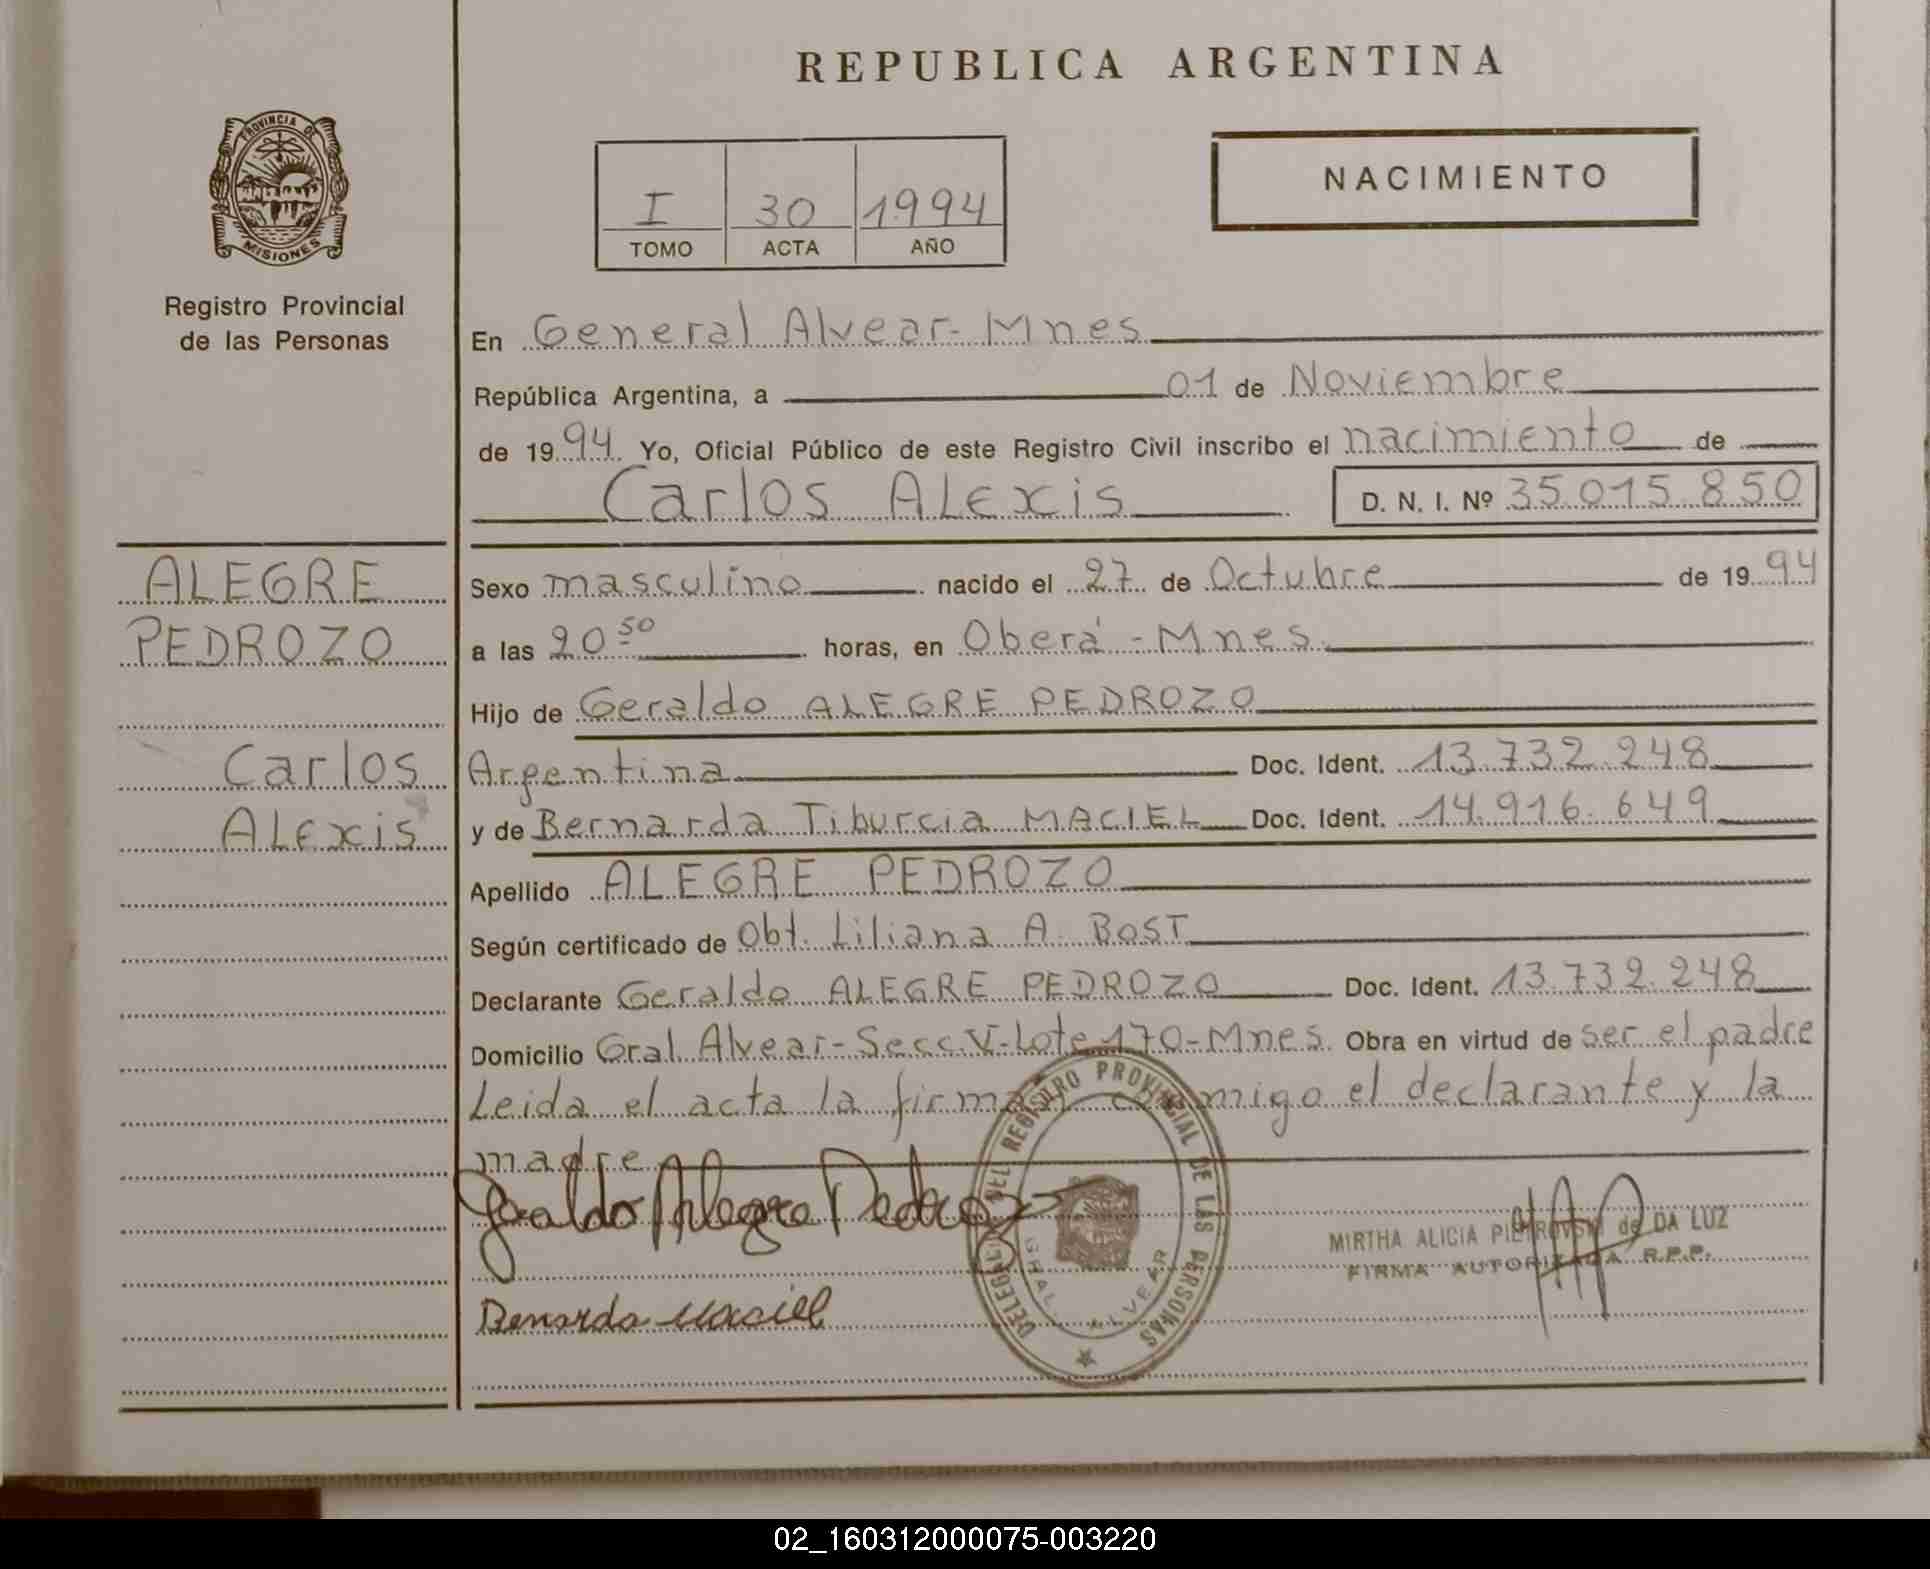 REPUBLICA ARGENTINA
PROVINCIA DE
MISIONES
Registro Provincial
de las Personas
I 30 1994
TOMO ACTA AÑO
NACIMIENTO
En General Alvear-Mnes
República Argentina, a 01 de Noviembre
de 1994 Yo, Oficial Público de este Registro Civil inscribo el nacimiento de
Carlos ALExis D. N. I. Nº 35.015.850
ALEGRE
PEDROZO
Carlos
ALExis
Sexo masculino nacido el 27 de Octubre de 1994
a las 20 50 horas, en Oberá-Mnes
Hijo de Geraldo ALEGRE PEDROZO
Argentina Doc. Ident. 13.732.248
y de Bernarda Tiburcia MACIEL Doc. Ident. 14.916.649
Apellido ALEGRE PEDROZO
Según certificado de Obt. Liliana A. BOST
Declarante Geraldo ALEGRE PEDROZO Doc. Ident. 13.732.248
Domicilio Gral Alvear-Secc.V-Lote 170-Mnes. Obra en virtud de ser el padre
Leida el acta la firman conmigo el declarante y la
madre
Geraldo Alegre Pedrozo
DELEGACION DEL REGISTRO PROVINCIAL DE LAS PERSONAS
GRAL. ALVEAR
MIRTHA ALICIA PIETROVSKI de DA LUZ
FIRMA AUTORIZADA R.P.P.
Benarda Maciel
02_160312000075-003220